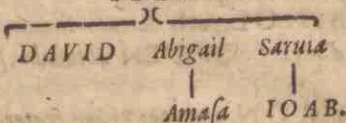 DAVID Abigail Saruiæ
Amaſa IOAB.